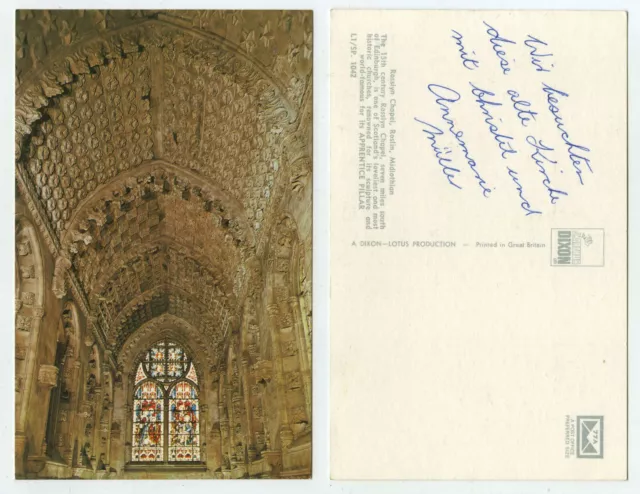 Wir besuchten
diese alte Kirche
mit Christel und
Annemarie
Müller
Rosslyn Chapel, Roslin, Midlothian
The 15th century Rosslyn Chapel, seven miles south
of Edinburgh, is one of Scotland's loveliest and most
historic churches, renowned for its sculpture and
world-famous for its APPRENTICE PILLAR
L1/SP. 1042
A DIXON—LOTUS PRODUCTION — Printed in Great Britain
DIXON
A POST OFFICE
PREFERRED SIZE